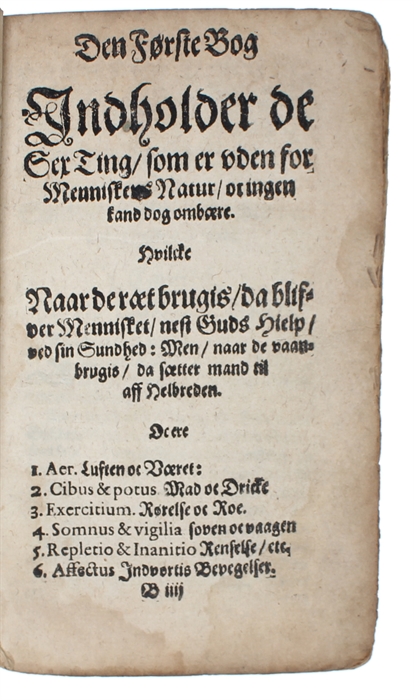 Den Første Bog
Indholder de
Sex Ting/ som er vden for
Menniskens Natur/ oc ingen
kand dog ombære.
Hvilcke
Naar de ræt brugis/ da blif-
ver Mennisket/ nest Guds Hielp/
ved sin Sundhed: Men/ naar de vaan-
brugis/ da sætter mand til
aff Helbreden.
Oc ere
1. Aer. Luften oc Været:
2. Cibus & potus Mad oc Dricke
3. Exercitium. Rørelse oc Roe.
4. Somnus & vigilia soven oc vaagen
5. Repletio & Inanitio Renselse/ etc.
6. Affectus Indvortis Bevegelser.
B iiij